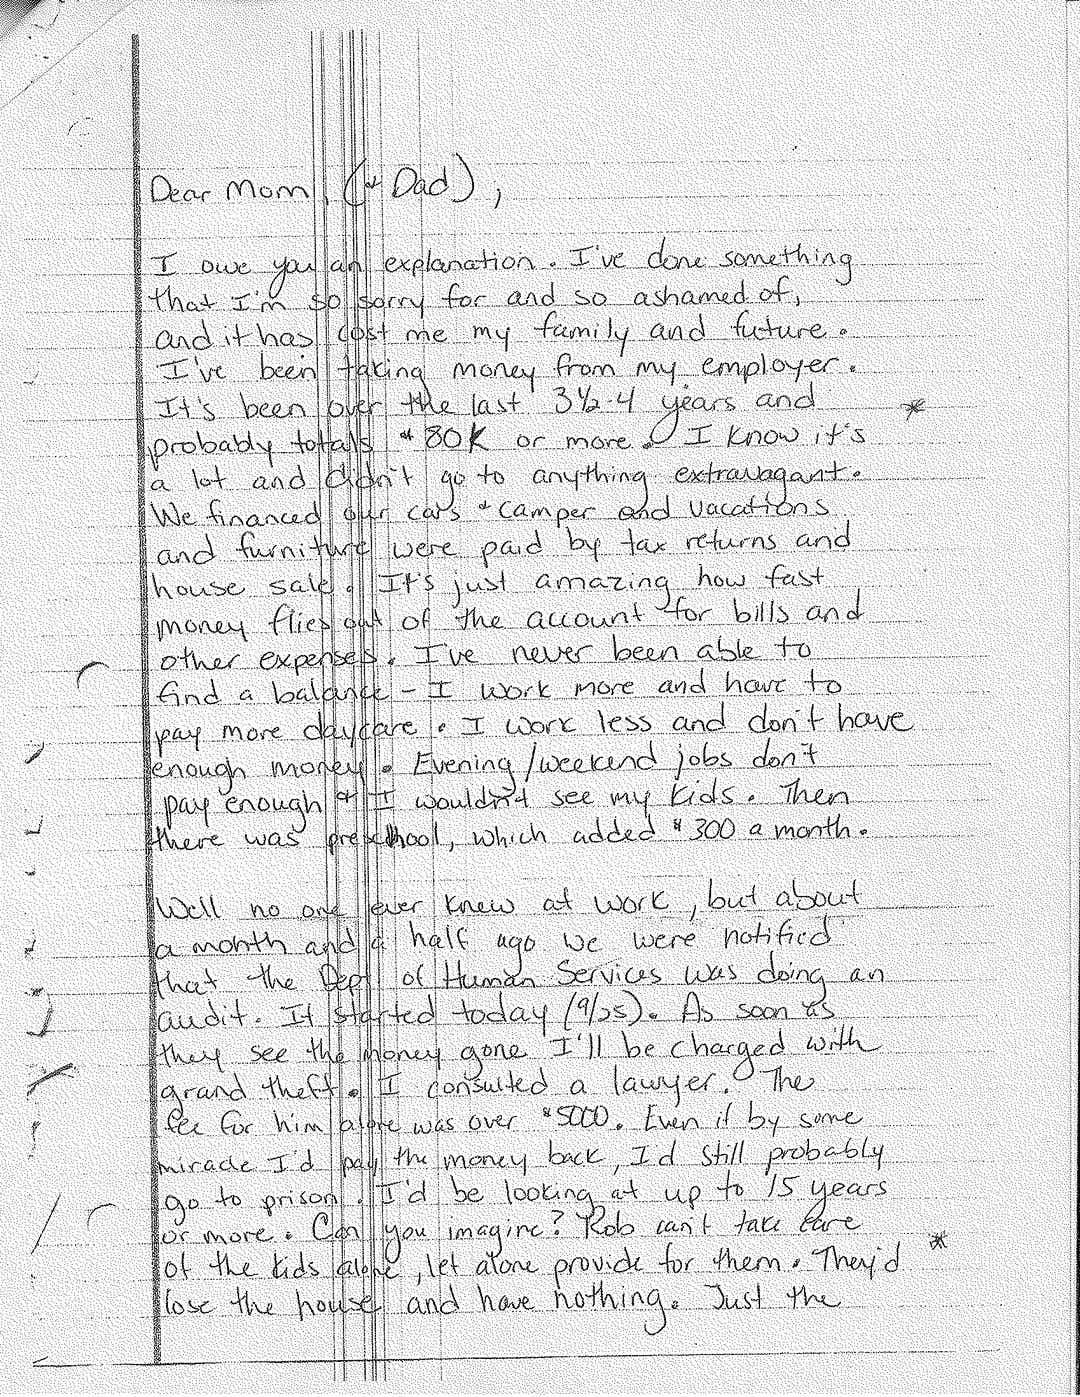 Dear Mom, (+ Dad),
I owe you an explanation. I've done something
that I'm so sorry for and so ashamed of,
and it has cost me my family and future.
I've been taking money from my employer.
It's been over the last 3½-4 years and *
probably totals $80K or more. I know it's
a lot and didn't go to anything extravagant.
We financed our cars + camper and vacations
and furniture were paid by tax returns and
house sale. It's just amazing how fast
money flies out of the account for bills and
other expenses. I've never been able to
find a balance - I work more and have to
pay more daycare. I work less and don't have
enough money. Evening/weekend jobs don't
pay enough + I wouldn't see my kids. Then
there was preschool, which added $300 a month.
Well no one ever knew at work, but about
a month and a half ago we were notified
that the Dept of Human Services was doing an
audit. It started today (9/25). As soon as
they see the money gone I'll be charged with
grand theft. I consulted a lawyer. The
fee for him alone was over $5000. Even if by some
miracle I'd pay the money back, I'd still probably
go to prison. I'd be looking at up to 15 years
or more. Can you imagine? Rob can't take care
of the kids alone, let alone provide for them. They'd *
lose the house and have nothing. Just the